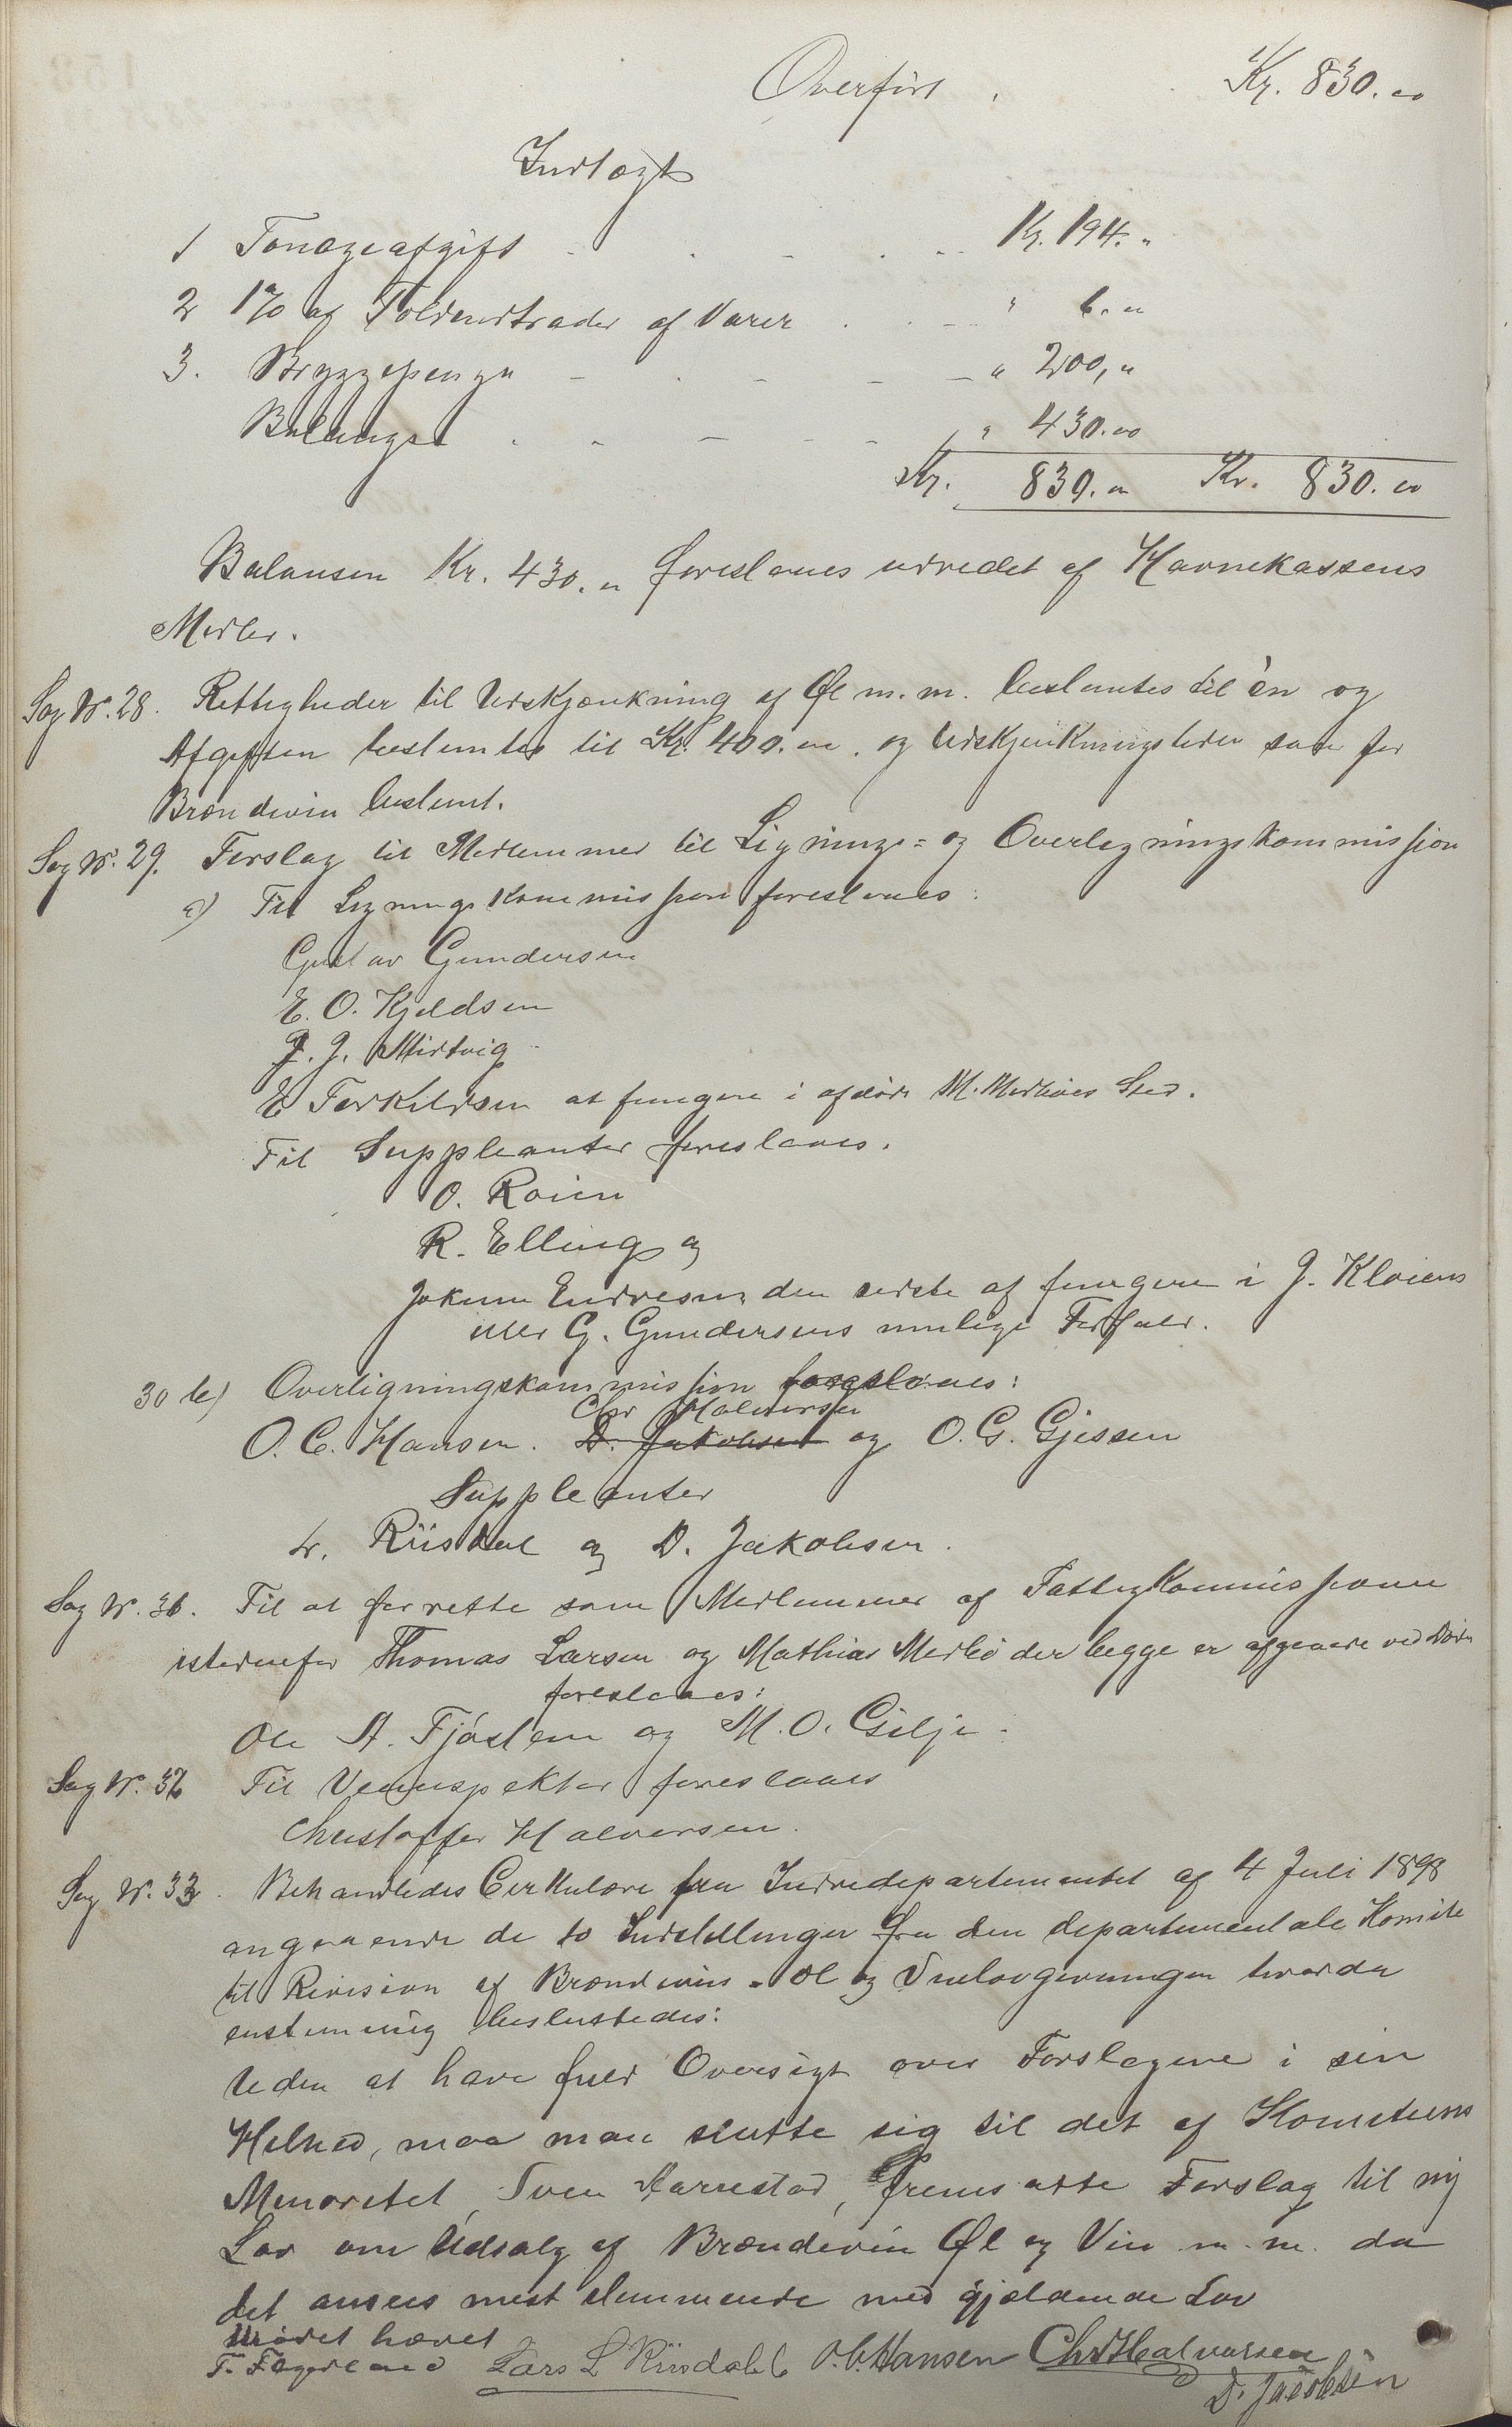 Overført Kr. 830.00
Indtægt
1 Tonageafgift Kr. 194. "
2 1% af Toldindtrader af Varer " 6. "
3. Bryggepenge " 200, "
Balanse " 430.00
Kr. 830. " Kr. 830. 00
Balansen Kr. 430. " foreslaaes udredet af Havnekassens
Midler.
Sag No. 28. Rettigheder til Udskjænkning af Øl m.m. bestemtes til èn og
Afgiften bestemtes til Kr. 400. 00. og Udskjænkningstiden som for
Brændevin bestemt.
Sag No. 29. Forslag til Medlemmer til Lignings= og Overligningskommission
a) Til Ligningskommission foreslaaes:
Gustav Gundersen
E. O. Kjeldsen
J. J. Midtvig
E Torkildsen at fungere i afdøde M. Medbøes Sted.
Til Suppleanter foreslaaes.
O. Roien
R. Elling og
Jokum Endresen, den sidste at fungere i J. Kloiens
eller G. Gundersens mulige Forfald.
30 b) Overligningskommission foreslaaes:
Chr Halvorsen
O. C. Hansen. D. Jakobsen og O. G. Gjessen
Suppleanter
L. Riisdal og D. Jakobsen.
Sag No. 31. Til at forrette som Medlemmer af Fattigkommissionen
istedenfor Thomas Larsen og Mathias Medbø der begge er afgaaede ved Døden
foreslaaes:
Ole A. Tjåsten og M. O. Gilje.
Sag No. 32 Til Veiinspektør foreslaaes
Christoffer Halvorsen.
Sag No. 33. Behandledes Cirkulære fra Indredepartementet af 4 Juli 1898
angaaende de to Indstillinger fra den departementale Komite
til Revision af Brændevins - Øl og Vinlovgivningen hvorda
enstemmig besluttedes:
Uden at have fuld Oversigt over Forslagene i sin
Helhed, maa man slutte sig til det af Komiteens
Minoritet, Sven Aarrestad, fremsatte Forslag til ny
Lov om Udsalg af Brændevin Øl og Vin m. m. da
det ansees mest stemmende med gjældende Lov
Mødet hævet
T. Fagerland Lars L Riisdahl O. C. Hansen Chr Halvorsen
D. Jacobsen